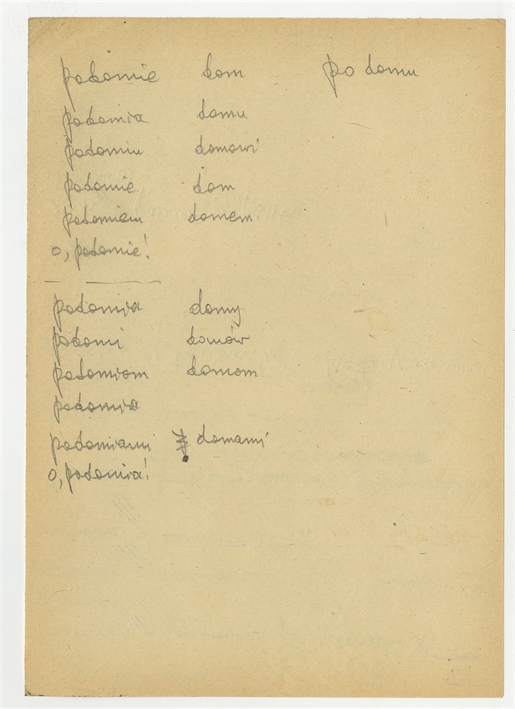 podomie dom po domu
podomia domu
podomiu domowi
podomie dom
podomiem domem
o, podomie!
podomia domy
podomi domów
podomiom domom
podomia
podomiami domami
o, podomia!